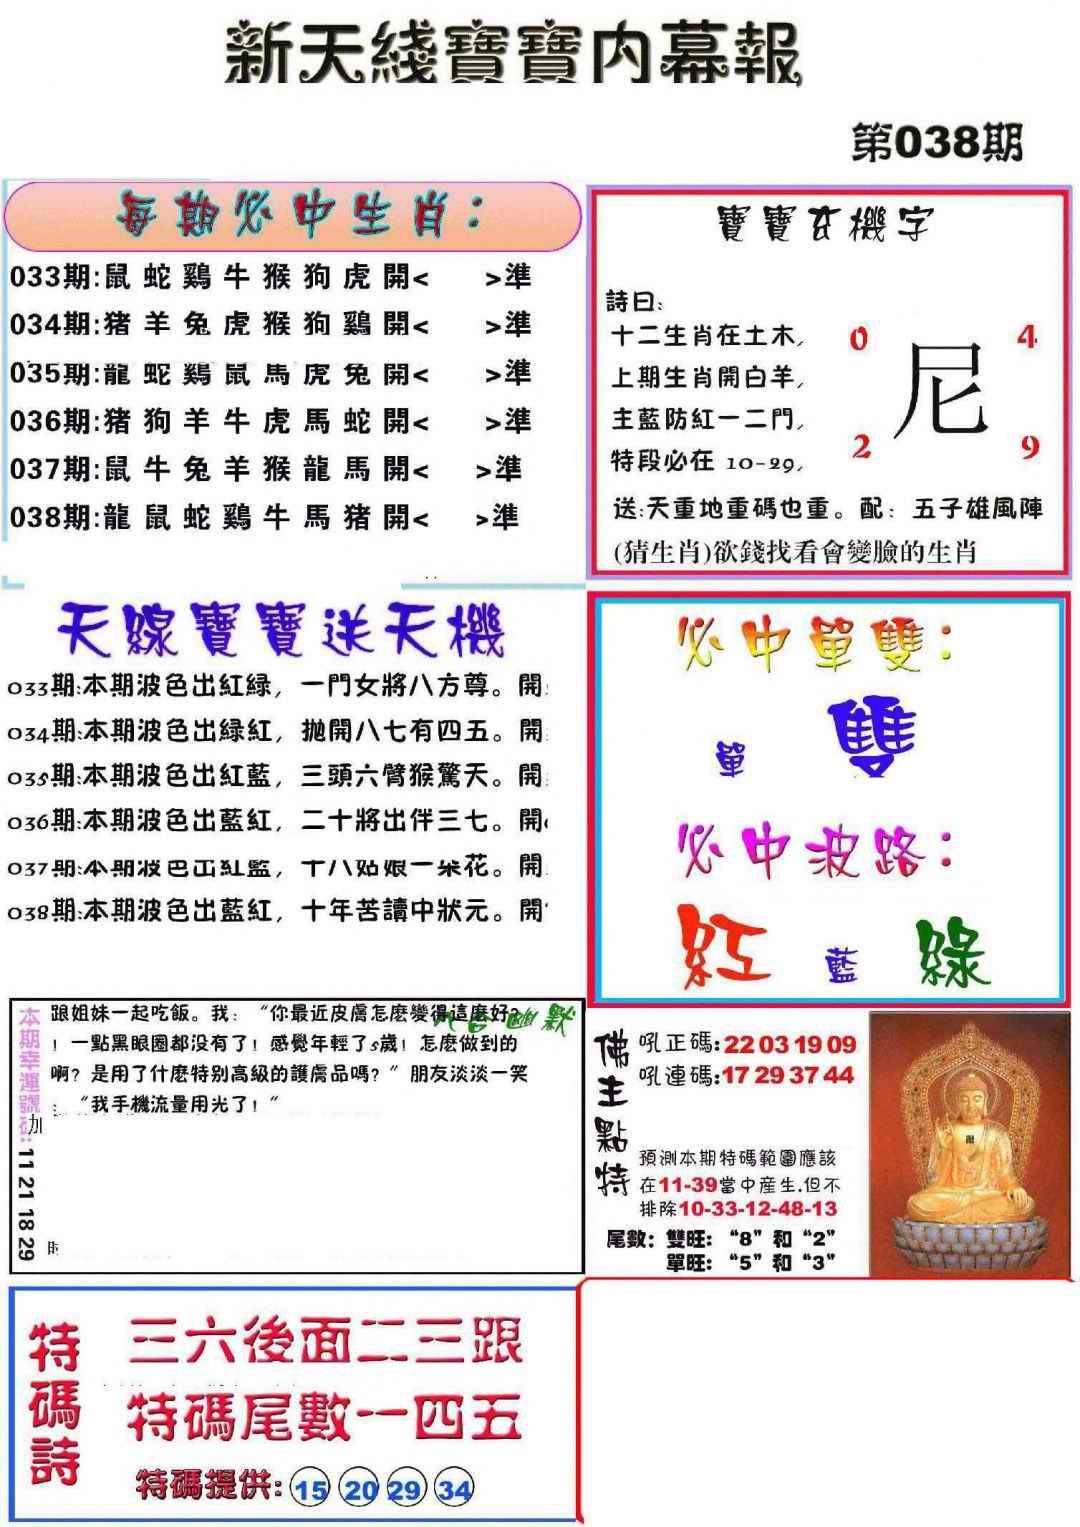 新天綫寶寶内幕報
第038期
每期必中生肖：
033期:鼠 蛇 鷄 牛 猴 狗 虎 開< >準
034期:猪 羊 兔 虎 猴 狗 鷄 開< >準
035期:龍 蛇 鷄 鼠 馬 虎 兔 開< >準
036期:猪 狗 羊 牛 虎 馬 蛇 開< >準
037期:鼠 牛 兔 羊 猴 龍 馬 開< >準
038期:龍 鼠 蛇 鷄 牛 馬 猪 開< >準
寶寶玄機字
詩曰:
十二生肖在土木,
上期生肖開白羊,
主藍防紅一二門,
特段必在 10-29,
0 4
尼
2 9
送:天重地重碼也重。配：五子雄風陣
(猜生肖)欲錢找看會變臉的生肖
天線寶寶送天機
033期:本期波色出紅緑，一門女將八方尊。開:
034期:本期波色出緑紅，拋開八七有四五。開:
035期:本期波色出紅藍，三頭六臂猴驚天。開:
036期:本期波色出藍紅，二十將出伴三七。開
037期:本期波色出紅藍，十八姑娘一朵花。開
038期:本期波色出藍紅，十年苦讀中狀元。開
必中單雙：
單 雙
必中波路：
紅 藍 綠
本期幸運號碼: 11 21 18 29
幽默
跟姐妹一起吃飯。我：“你最近皮膚怎麽變得這麽好?
！一點黑眼圈都没有了！感覺年輕了5歲！怎麽做到的
啊？是用了什麽特别高級的護膚品嗎？”朋友淡淡一笑
：“我手機流量用光了！“
加
佛主點特
吼正碼:22 03 19 09
吼連碼:17 29 37 44
預測本期特碼範圍應該
在11-39當中産生.但不
排除10-33-12-48-13
尾數：雙旺：“8”和“2”
單旺：“5”和“3”
特碼詩
三六後面二三跟
特碼尾數一四五
特碼提供: 15 20 29 34